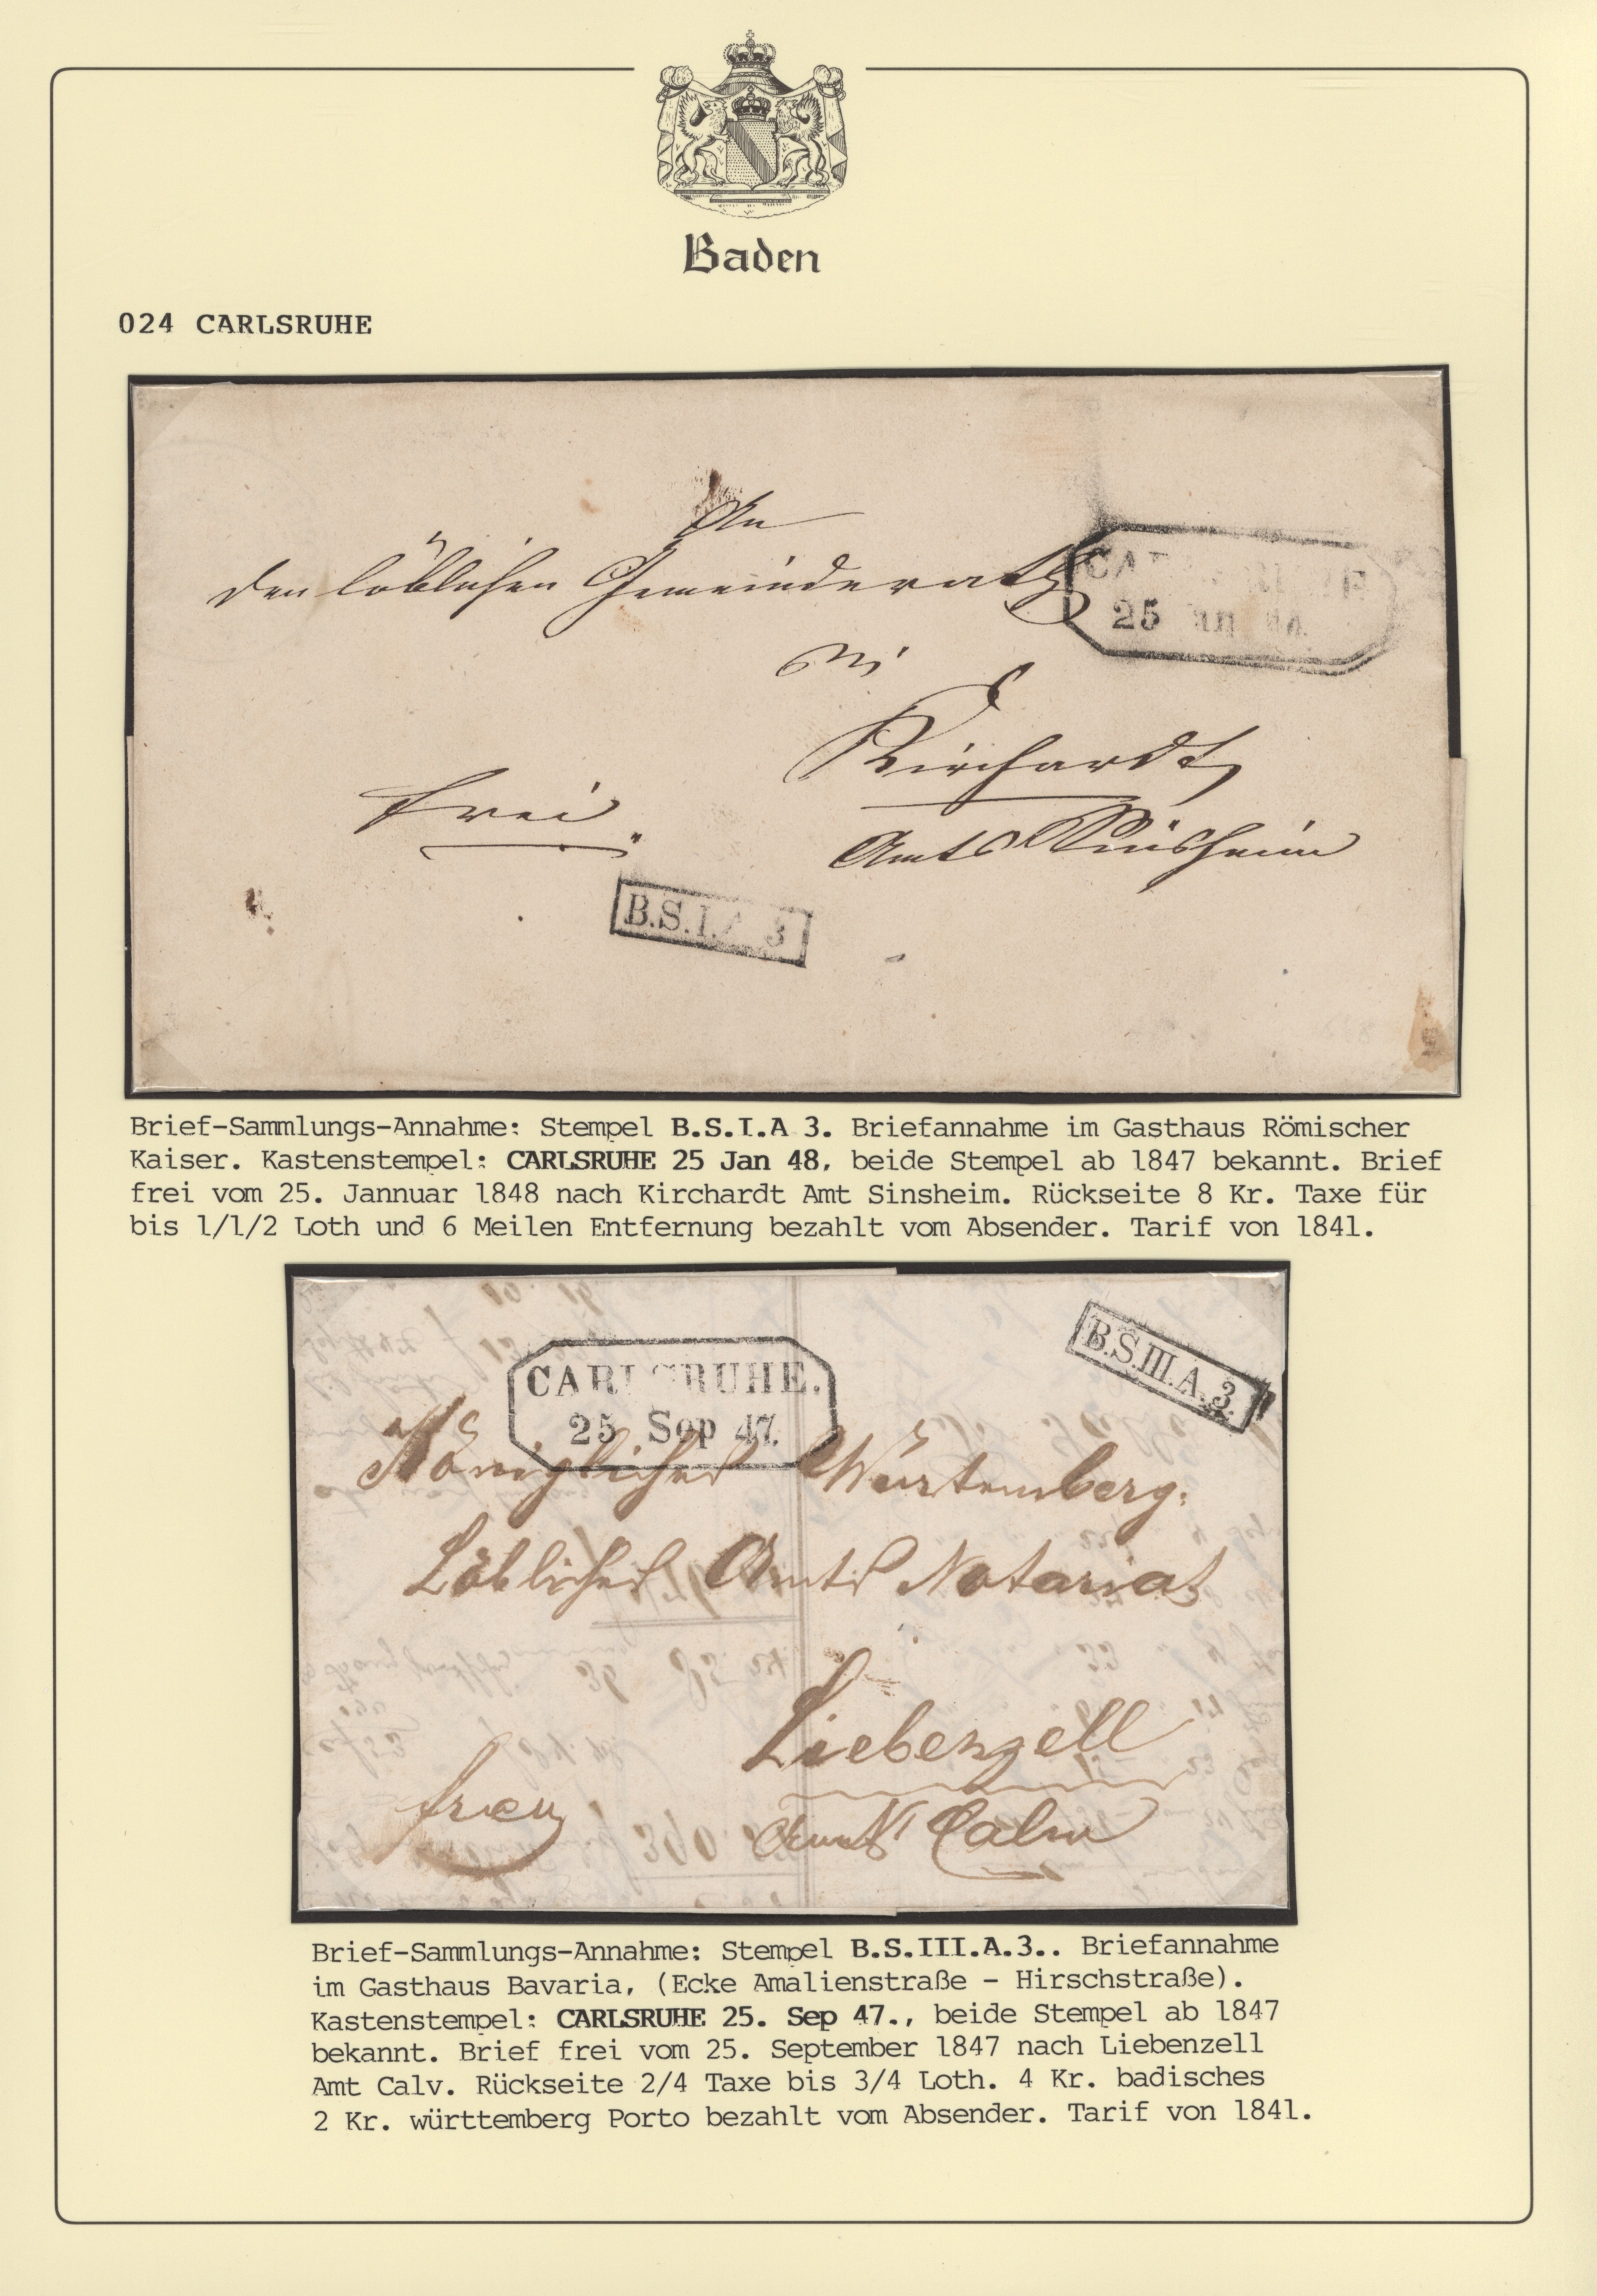 Baden
024 CARLSRUHE
An
den löblichen Gemeinderath
CA
25
in
Kirchardt
frei.
Amts Sinsheim
B.S.I.A 3
Brief-Sammlungs-Annahme: Stempel B.S.I.A 3. Briefannahme im Gasthaus Römischer
Kaiser. Kastenstempel: CARLSRUHE 25 Jan 48, beide Stempel ab 1847 bekannt. Brief
frei vom 25. Jannuar 1848 nach Kirchardt Amt Sinsheim. Rückseite 8 Kr. Taxe für
bis 1/1/2 Loth und 6 Meilen Entfernung bezahlt vom Absender. Tarif von 1841.
B.S.III.A.3.
CARLSRUHE.
25 Sep 47.
Königliches Würtemberg.
Löbliches Amts Notariat
Liebenzell
frey
Amt Calw
Brief-Sammlungs-Annahme: Stempel B.S.III.A.3.. Briefannahme
im Gasthaus Bavaria, (Ecke Amalienstraße - Hirschstraße).
Kastenstempel: CARLSRUHE 25. Sep 47., beide Stempel ab 1847
bekannt. Brief frei vom 25. September 1847 nach Liebenzell
Amt Calv. Rückseite 2/4 Taxe bis 3/4 Loth. 4 Kr. badisches
2 Kr. württemberg Porto bezahlt vom Absender. Tarif von 1841.